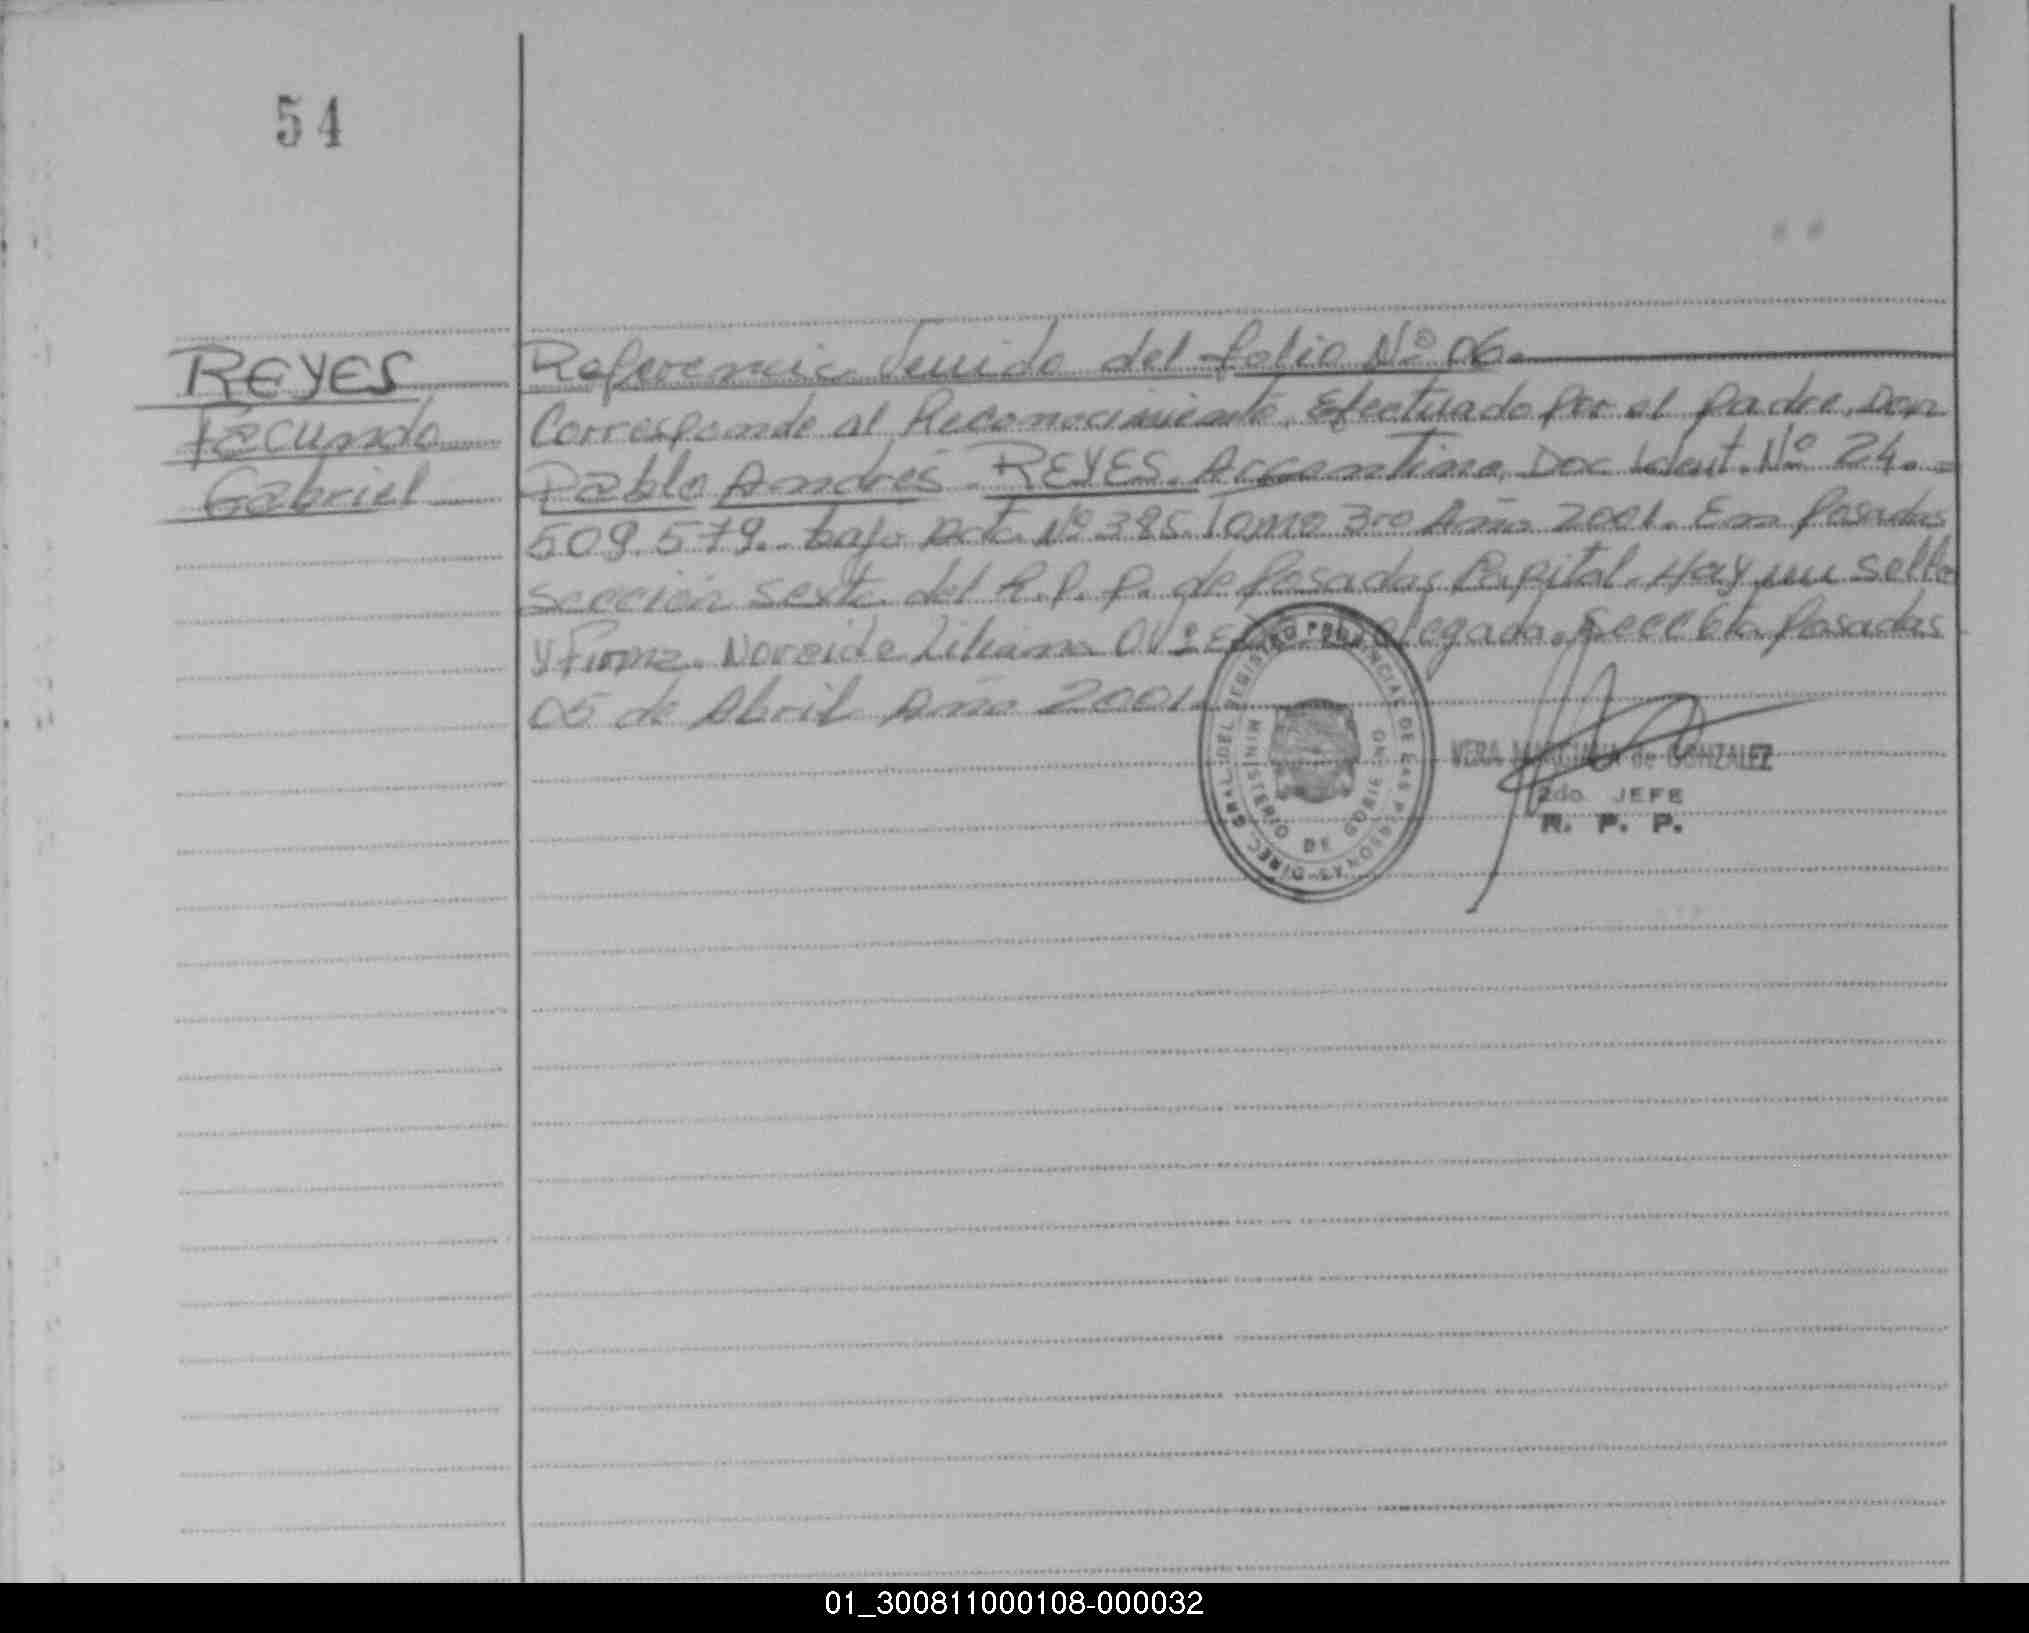 54
REYES
Facundo
Gabriel
Referencia Venido del folio Nº 06.
Corresponde al Reconocimiento, Efectuado por el padre, Don
Pablo Andrés REYES. Argentino, Doc. Ident. Nº 24.=
509.579. bajo Acta Nº 385. Tomo 3ro Año 2001. En Posadas
Sección Sexta del R.P.P. de Posadas, Capital. Hay un sello
y Firma. Noreide Liliana Delegada. Secc 6ta Posadas
05 de Abril Año 2001.
DIREC. GRAL. DEL REGISTRO PROVINCIAL DE LAS PERSONAS
MINISTERIO DE GOBIERNO
VERA MARCIANA de GONZALEZ
2do. JEFE
R. P. P.
01_300811000108-000032